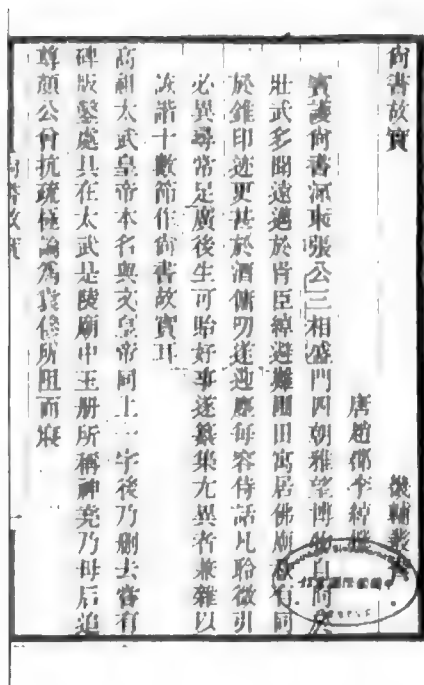 尚書故實 畿輔叢書
唐趙郡李綽撰
賓護尚書河東張公三相盛門四朝雅望博物自同於
壯武多聞遠邁於胥臣綽避難圃田寓居佛廟秩有同
於錐印迹更甚於酒傭叨遂迎塵每容侍話凡聆徵引
必異尋常足廣後生可貽好事遂纂集尤異者兼雜以
詼諧十數節作尚書故實耳
高祖太武皇帝本名與文皇帝同上一字後乃刪去嘗有
碑版鑿處具在太武是陵廟中玉册所稱神堯乃母后追
尊顏公曾抗疏極論為袁傪所阻而寢
尚書故實